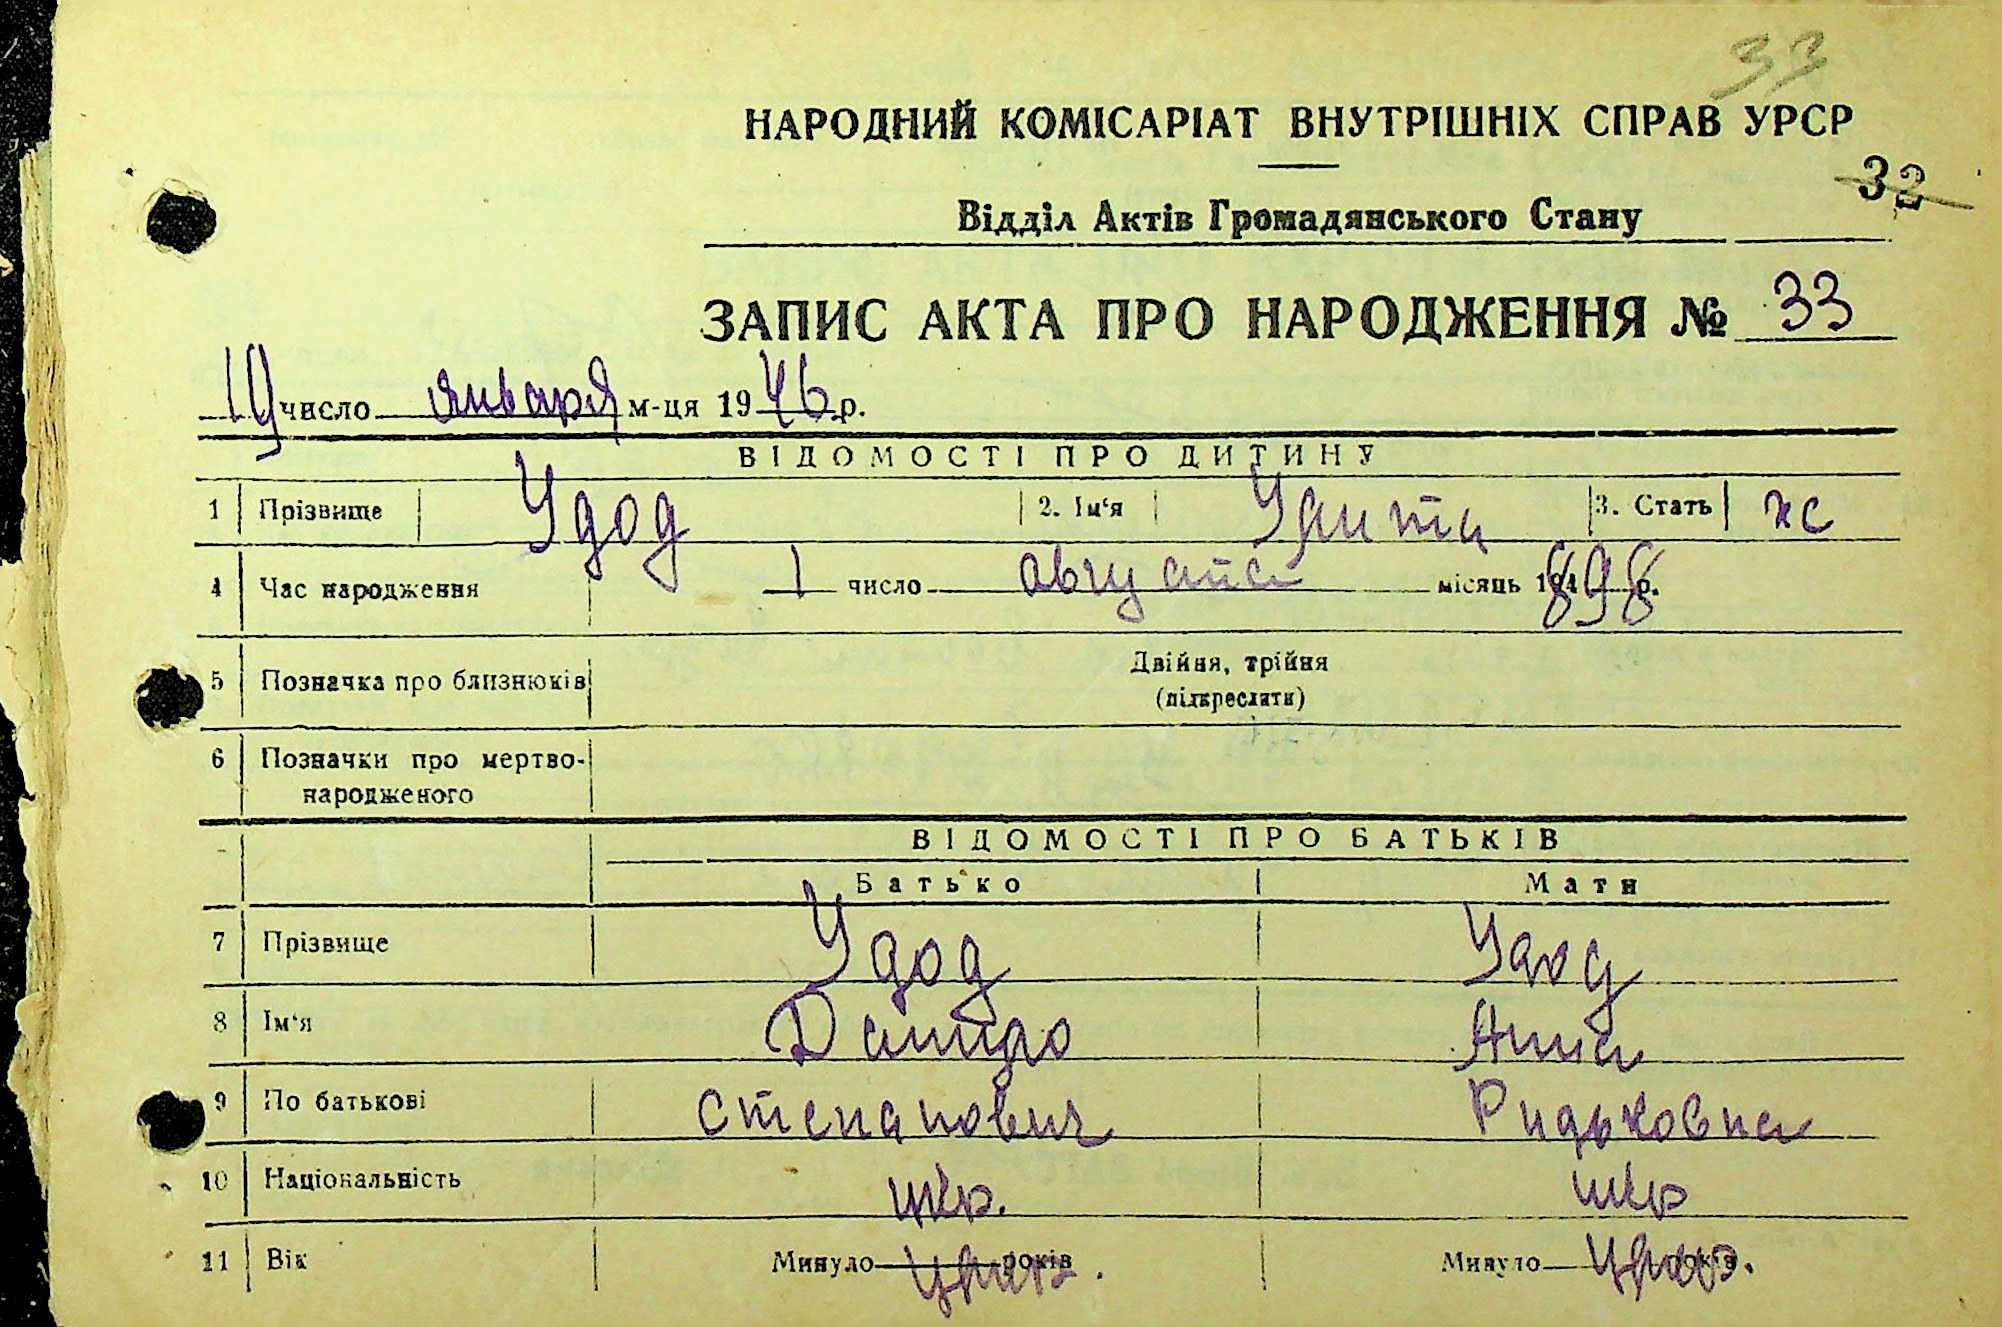 33
НАРОДНИЙ КОМІСАРІАТ ВНУТРІШНІХ СПРАВ УРСР
32
Відділ Актів Громадянського Стану
ЗАПИС АКТА ПРО НАРОДЖЕННЯ № 33
19 число января м-ця 1946 р.
ВІДОМОСТІ ПРО ДИТИНУ
1 Прізвище Удод 2. Ім'я 3. Стать ж
4 Час народження 1 число августа місяць 1898 р.
5 Позначка про близнюків Двійня, трійня
(підкреслити)
6 Позначки про мертво-
народженого
ВІДОМОСТІ ПРО БАТЬКІВ
Батько Мати
7 Прізвище Удод Удод
8 Ім'я Дмитро Анна
9 По батькові Степанович
10 Національність укр. укр
11 Вік Минуло років Минуло років